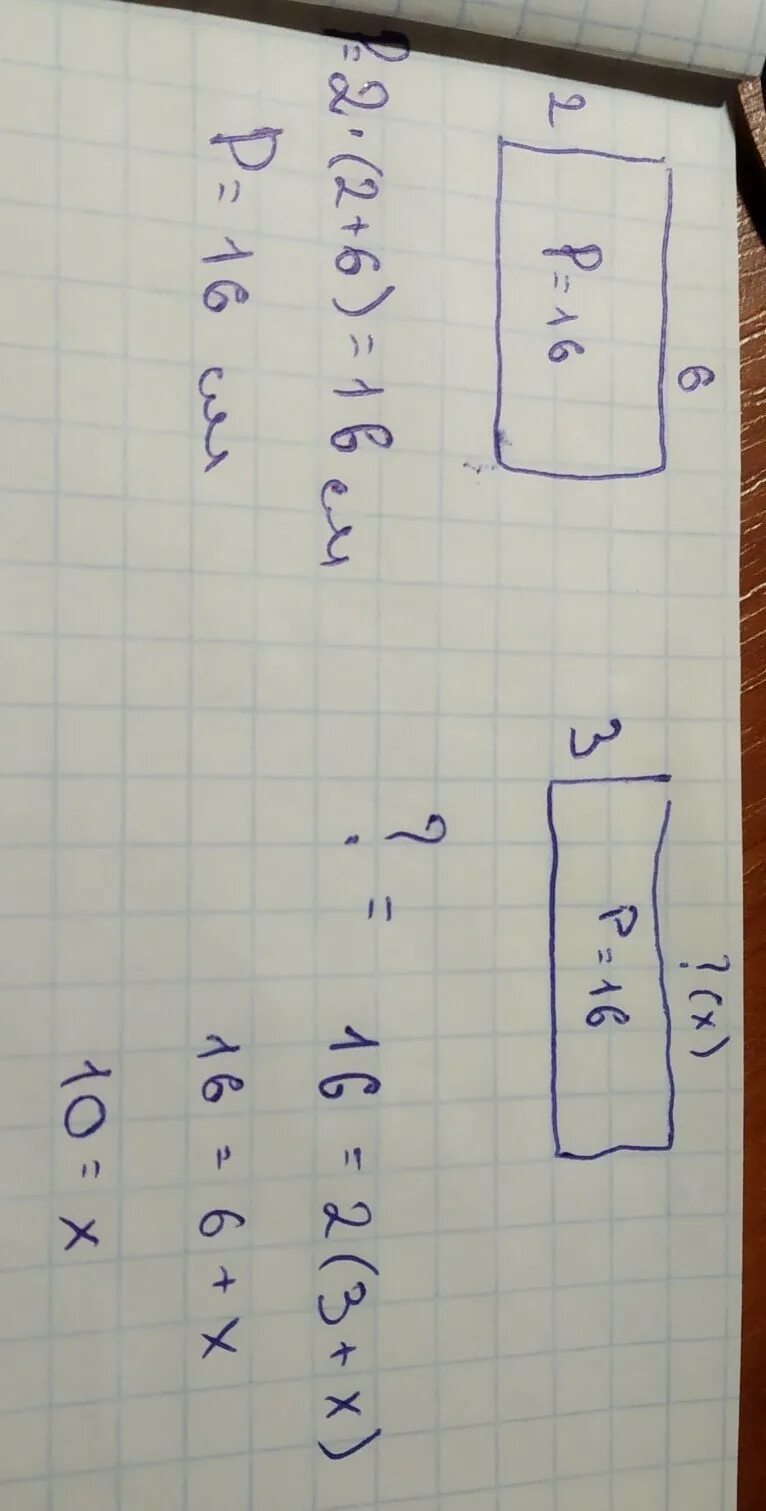 6
2
P=16
P=2·(2+6)=16 см
P=16 см
?(x)
3
P=16
? = 16=2(3+x)
16=6+x
10=x